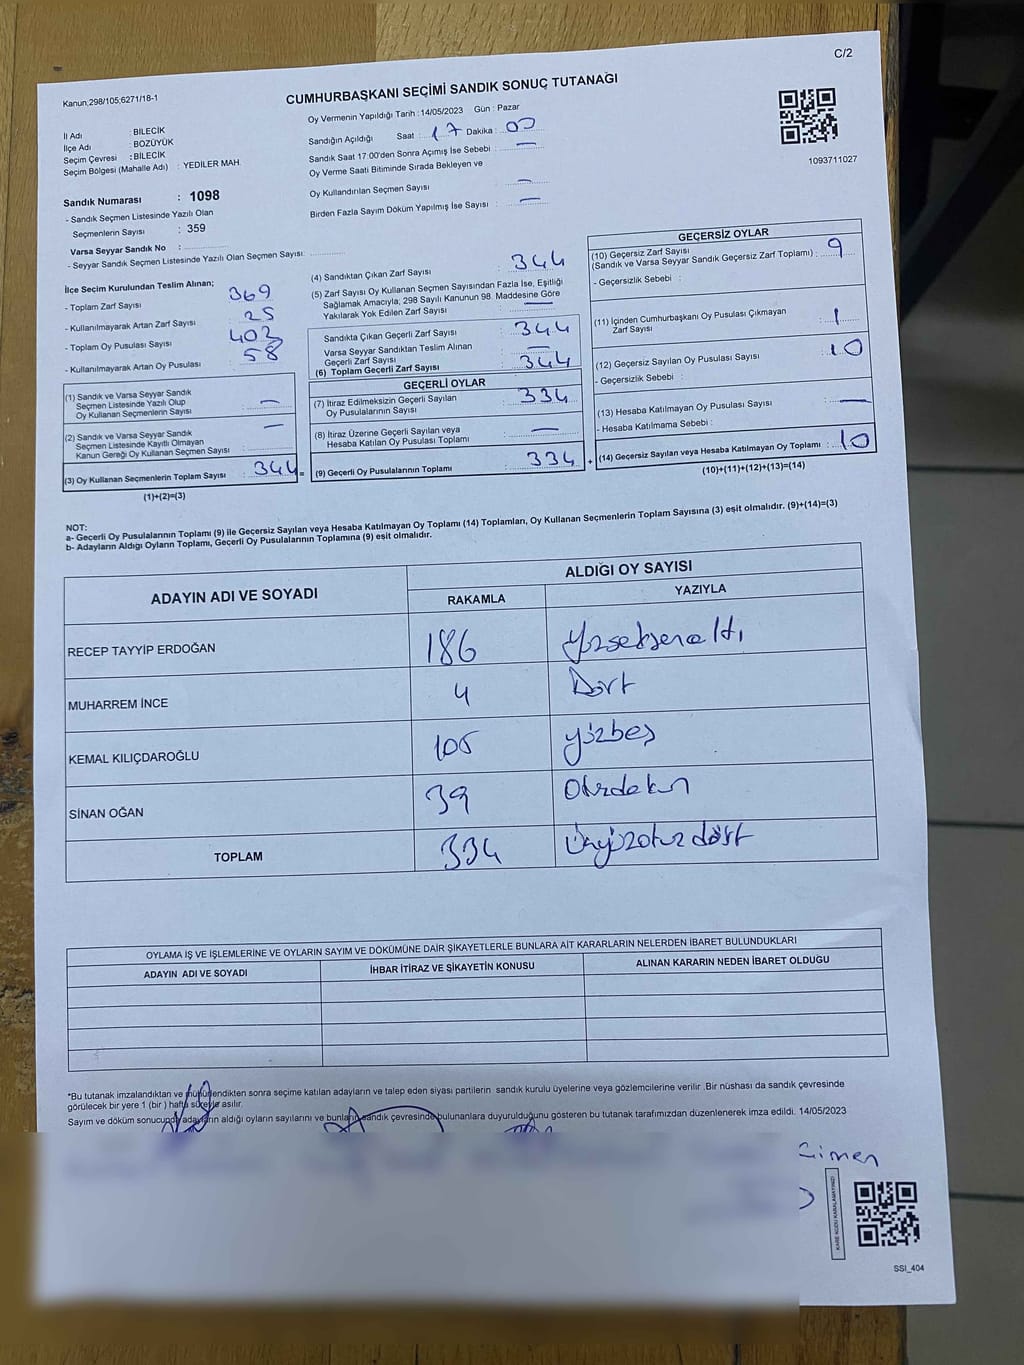 C/2
Kanun;298/105;6271/18-1
CUMHURBAŞKANI SEÇİMİ SANDIK SONUÇ TUTANAĞI
Oy Vermenin Yapıldığı Tarih : 14/05/2023 Gün : Pazar
1093711027
İl Adı : BİLECİK
İlçe Adı : BOZÜYÜK
Seçim Çevresi : BİLECİK
Seçim Bölgesi (Mahalle Adı) : YEDİLER MAH.
Sandık Numarası : 1098
- Sandık Seçmen Listesinde Yazılı Olan
Seçmenlerin Sayısı : 359
Varsa Seyyar Sandık No :
- Seyyar Sandık Seçmen Listesinde Yazılı Olan Seçmen Sayısı:
Sandığın Açıldığı Saat : 17 Dakika : 00
Sandık Saat 17:00'den Sonra Açımış İse Sebebi : —
Oy Verme Saati Bitiminde Sırada Bekleyen ve
Oy Kullandırılan Seçmen Sayısı : —
Birden Fazla Sayım Döküm Yapılmış İse Sayısı : —
İlçe Seçim Kurulundan Teslim Alınan;
- Toplam Zarf Sayısı : 369
- Kullanılmayarak Artan Zarf Sayısı : 25
- Toplam Oy Pusulası Sayısı : 402
- Kullanılmayarak Artan Oy Pusulası : 58
(1) Sandık ve Varsa Seyyar Sandık
Seçmen Listesinde Yazılı Olup
Oy Kullanan Seçmenlerin Sayısı : —
(2) Sandık ve Varsa Seyyar Sandık
Seçmen Listesinde Kayıtlı Olmayan
Kanun Gereği Oy Kullanan Seçmen Sayısı : —
(3) Oy Kullanan Seçmenlerin Toplam Sayısı : 344 =
(1)+(2)=(3)
(4) Sandıktan Çıkan Zarf Sayısı : 344
(5) Zarf Sayısı Oy Kullanan Seçmen Sayısından Fazla İse, Eşitliği
Sağlamak Amacıyla; 298 Sayılı Kanunun 98. Maddesine Göre
Yakılarak Yok Edilen Zarf Sayısı : —
Sandıkta Çıkan Geçerli Zarf Sayısı : 344
Varsa Seyyar Sandıktan Teslim Alınan
Geçerli Zarf Sayısı : —
(6) Toplam Geçerli Zarf Sayısı : 344
GEÇERLİ OYLAR
(7) İtiraz Edilmeksizin Geçerli Sayılan
Oy Pusulalarının Sayısı : 334
(8) İtiraz Üzerine Geçerli Sayılan veya
Hesaba Katılan Oy Pusulası Toplamı : —
(9) Geçerli Oy Pusulalarının Toplamı : 334 +
GEÇERSİZ OYLAR
(10) Geçersiz Zarf Sayısı
(Sandık ve Varsa Seyyar Sandık Geçersiz Zarf Toplamı) : 9
- Geçersizlik Sebebi :
(11) İçinden Cumhurbaşkanı Oy Pusulası Çıkmayan
Zarf Sayısı : 1
(12) Geçersiz Sayılan Oy Pusulası Sayısı : 10
- Geçersizlik Sebebi :
(13) Hesaba Katılmayan Oy Pusulası Sayısı : —
- Hesaba Katılmama Sebebi :
(14) Geçersiz Sayılan veya Hesaba Katılmayan Oy Toplamı : 10
(10)+(11)+(12)+(13)=(14)
NOT:
a- Geçerli Oy Pusulalarının Toplamı (9) ile Geçersiz Sayılan veya Hesaba Katılmayan Oy Toplamı (14) Toplamları, Oy Kullanan Seçmenlerin Toplam Sayısına (3) eşit olmalıdır. (9)+(14)=(3)
b- Adayların Aldığı Oyların Toplamı, Geçerli Oy Pusulalarının Toplamına (9) eşit olmalıdır.
ADAYIN ADI VE SOYADI ALDIĞI OY SAYISI
RAKAMLA YAZIYLA
RECEP TAYYİP ERDOĞAN 186 yüzseksenaltı
MUHARREM İNCE 4 Dört
KEMAL KILIÇDAROĞLU 105 yüzbeş
SİNAN OĞAN 39
TOPLAM 334 üçyüzotuz dört
OYLAMA İŞ VE İŞLEMLERİNE VE OYLARIN SAYIM VE DÖKÜMÜNE DAİR ŞİKAYETLERLE BUNLARA AİT KARARLARIN NELERDEN İBARET BULUNDUKLARI
ADAYIN ADI VE SOYADI İHBAR İTİRAZ VE ŞİKAYETİN KONUSU ALINAN KARARIN NEDEN İBARET OLDUĞU
*Bu tutanak imzalandıktan ve mühürlendikten sonra seçime katılan adayların ve talep eden siyasi partilerin sandık kurulu üyelerine veya gözlemcilerine verilir .Bir nüshası da sandık çevresinde
görülecek bir yere 1 (bir ) hafta süreyle asılır.
Sayım ve döküm sonucunda adayların aldığı oyların sayılarını ve bunların sandık çevresinde bulunanlara duyurulduğunu gösteren bu tutanak tarafımızdan düzenlenerek imza edildi. 14/05/2023
KARE KODU KARALAMAYINIZ!
SSI_404